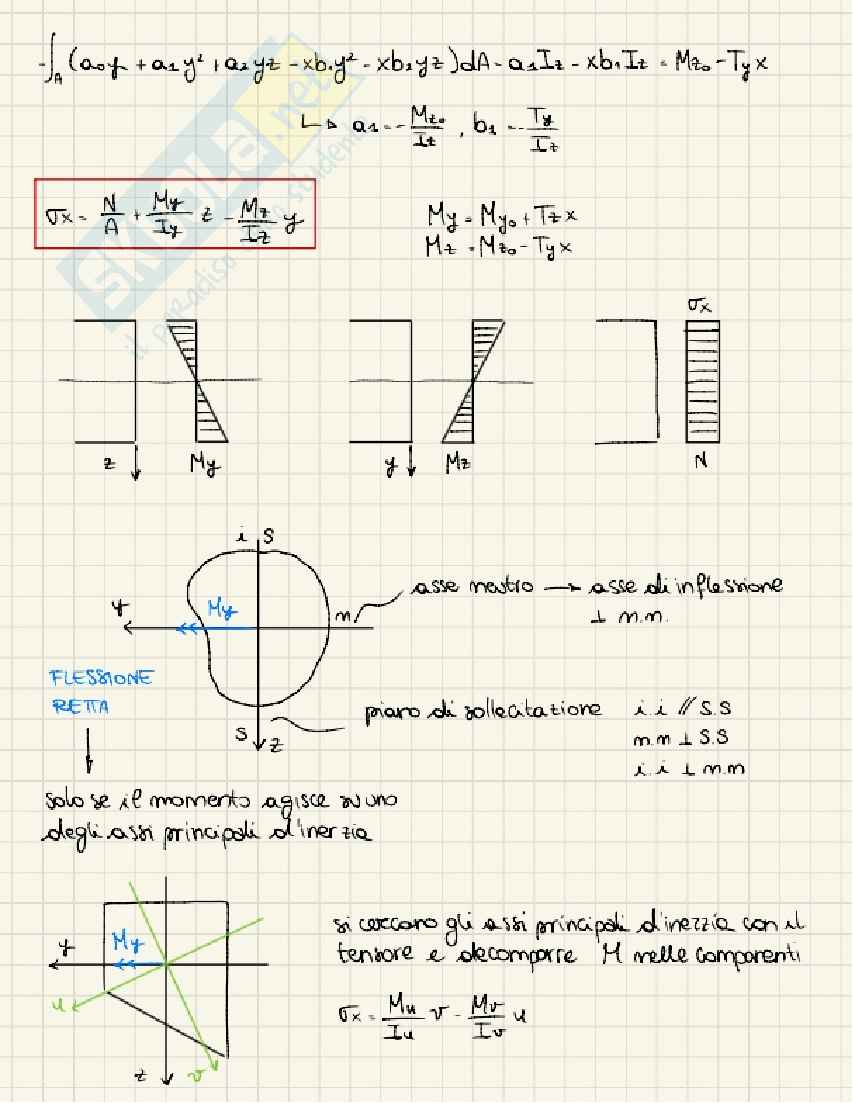 -∫_A (a₀y + a₁y² + a₂yz - xb₁y² - xb₂yz)dA = a₁I_z - xb₁I_z = M_z₀ - T_y x
↳ a₁ = -M_z₀/I_z , b₁ = -T_y/I_z
σ_x = N/A + M_y/I_y z - M_z/I_z y
M_y = M_y₀ + T_z x
M_z = M_z₀ - T_y x
SKUOLA.net
il paradiso
studenti
σ_x
z M_y y M_z N
i s
asse neutro → asse di inflessione
y M_y n
⊥ n.n.
FLESSIONE
RETTA
piano di sollecitazione i i // s.s
s z
n.n ⊥ s.s
i.i ⊥ n.n
solo se il momento agisce su uno
degli assi principali d'inerzia
si cercano gli assi principali d'inerzia con il
tensore e decomporre M nelle componenti
y M_y
u
σ_x = M_u/I_u v - M_v/I_v u
z v